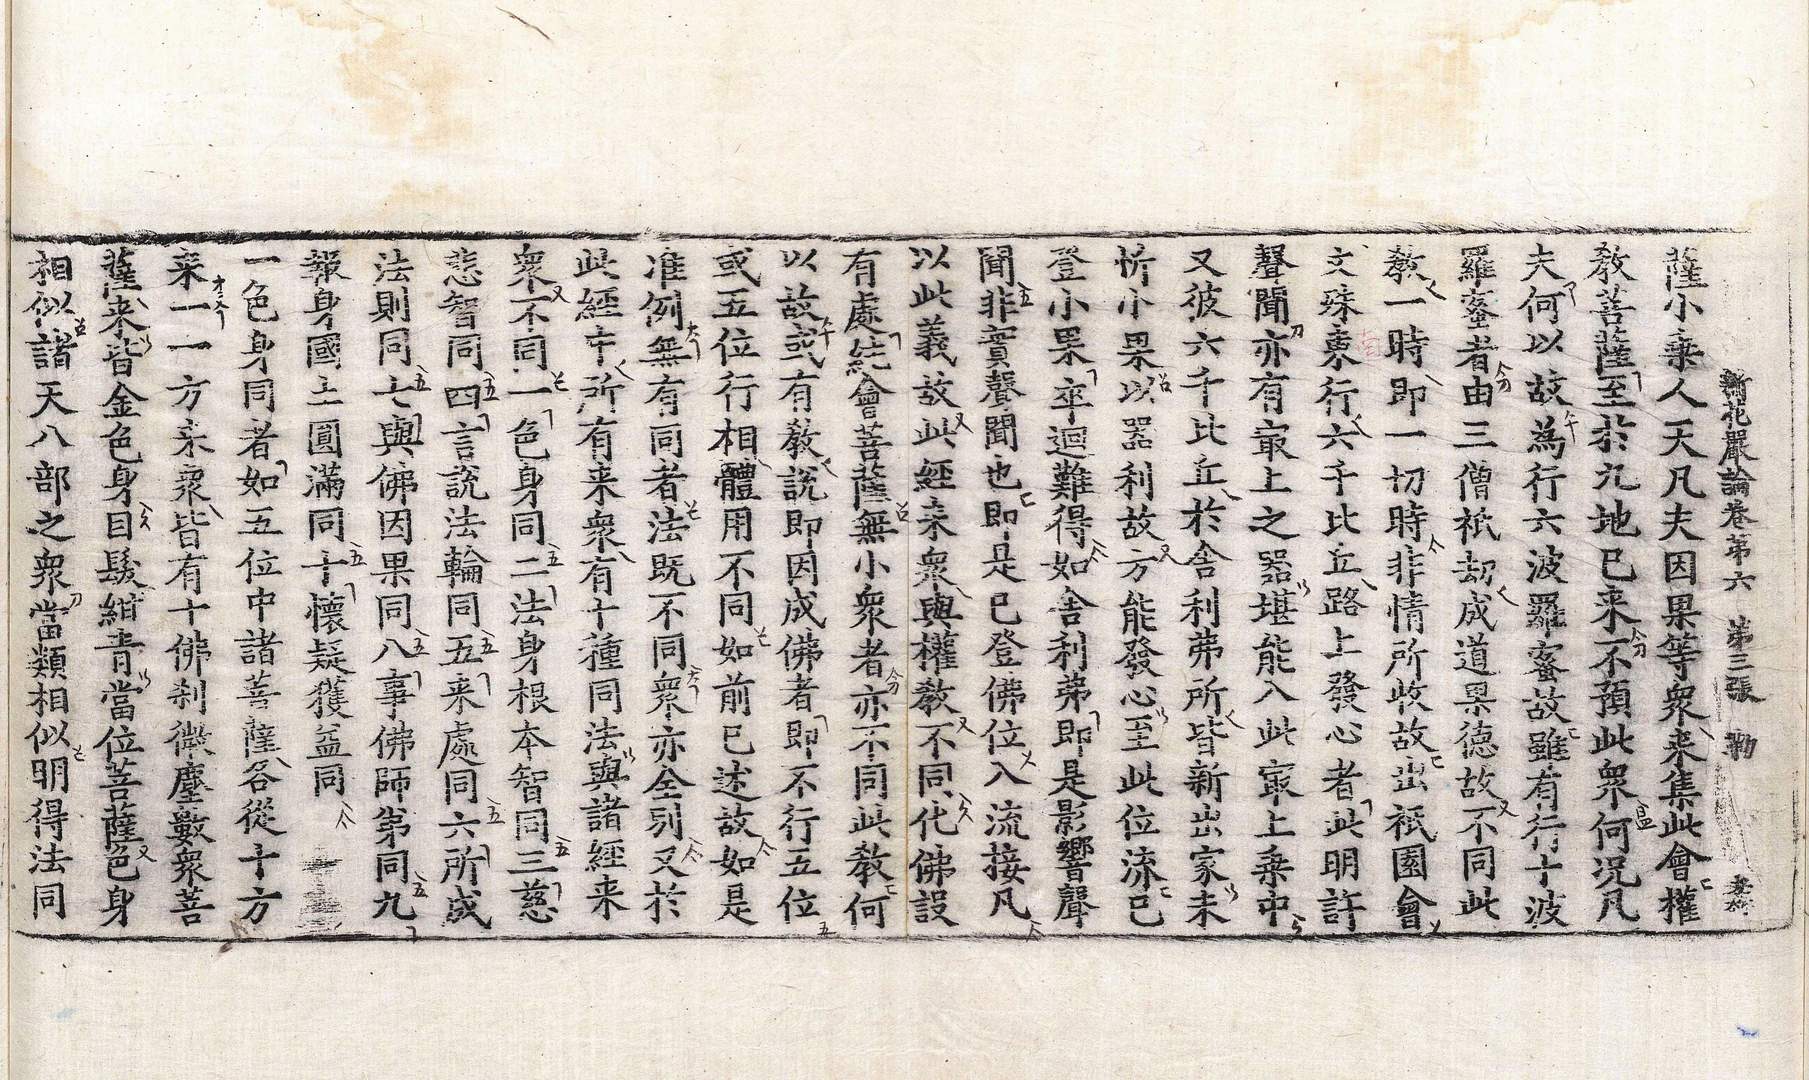 新花嚴論卷第六　第三張　勒　孝
薩小乗人天凡夫因果等衆来集此會權
教菩薩至於九地已来不預此衆何況凡
夫何以故為行六波羅蜜故雖有行十波
羅蜜者由三僧祇劫成道果德故不同此
教一時即一切時非情所收故出祇園會
文殊東行六千比丘路上發心者此明許
聲聞亦有㝡上之器堪能入此㝡上乗中
又彼六千比丘於舍利弗所皆新出家未
忻小果以器利故方能發心至此位流已
登小果卒迴難得如舍利弗即是影響聲
聞非實聲聞也即是已登佛位入流接凡
以此義故此經来衆與權教不同化佛設
有處純會菩薩無小衆者亦不同此教何
以故或有教說即因成佛者即不行五位
或五位行相體用不同如前已述故如是
准例無有同者法既不同衆亦全別又於
此經中所有来衆有十種同法與諸經来
衆不同一色身同二法身根本智同三慈
悲智同四言說法輪同五来處同六所成
法則同七與佛因果同八事佛師第同九
報身國土圓滿同十懷疑獲益同
一色身同者如五位中諸菩薩各從十方
来一一方来衆皆有十佛刹微塵數衆菩
薩来皆金色身目髮紺青當位菩薩色身
相似諸天八部之衆當類相似明得法同